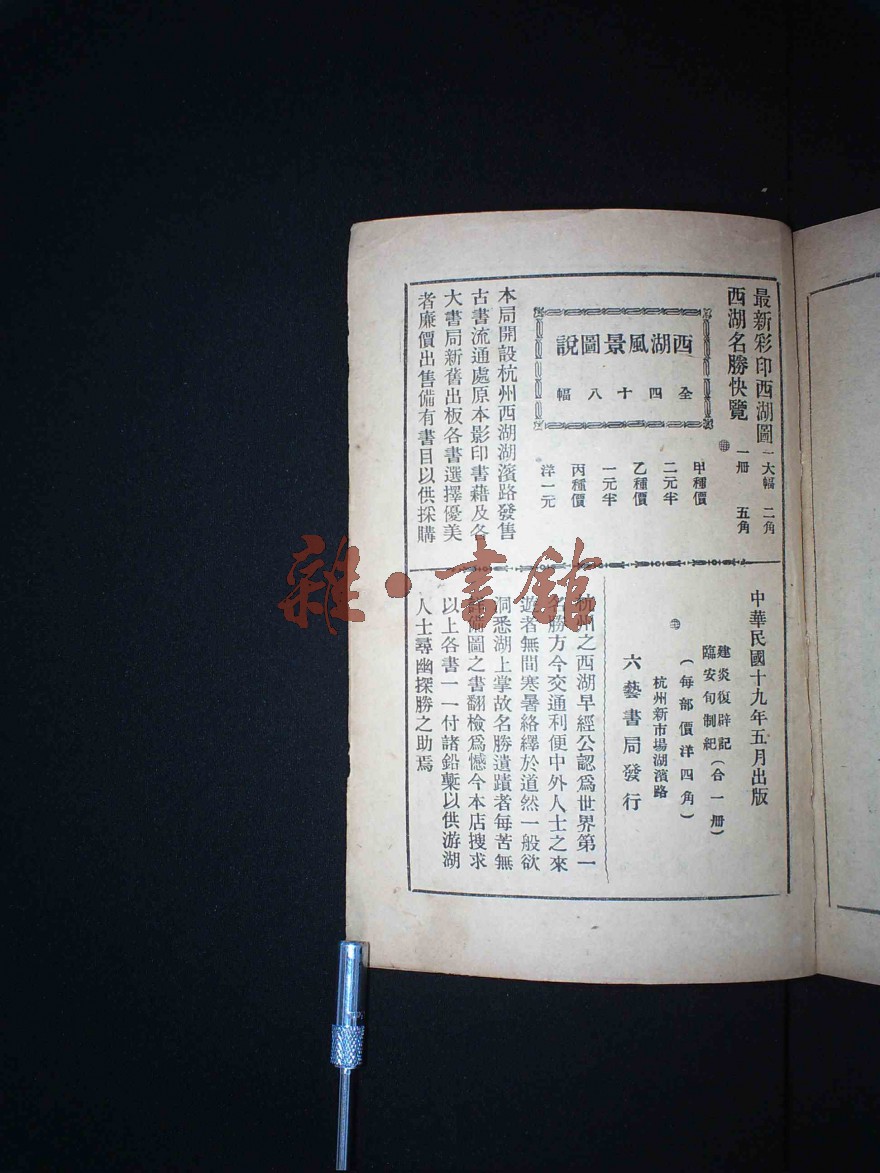 最新彩印西湖圖 一大幅 二角
西湖名勝快覽 一冊 五角
西湖風景圖說
全四十八幅
甲種價
二元半
乙種價
一元半
丙種價
洋一元
本局開設杭州西湖湖濱路發售
古書流通處原本影印書藉及各
大書局新舊出板各書選擇優美
者廉價出售備有書目以供採購
中華民國十九年五月出版
建炎復辟記
臨安旬制紀
(合一册)
(每部價洋四角)
杭州新市場湖濱路
六藝書局發行
杭州之西湖早經公認爲世界第一
名勝方今交通利便中外人士之來
遊者無間寒暑絡繹於道然一般欲
洞悉湖上掌故名勝遺蹟者每苦無
備圖之書翻檢爲憾今本店搜求
以上各書一一付諸鉛槧以供游湖
人士尋幽探勝之助焉
雜·書館